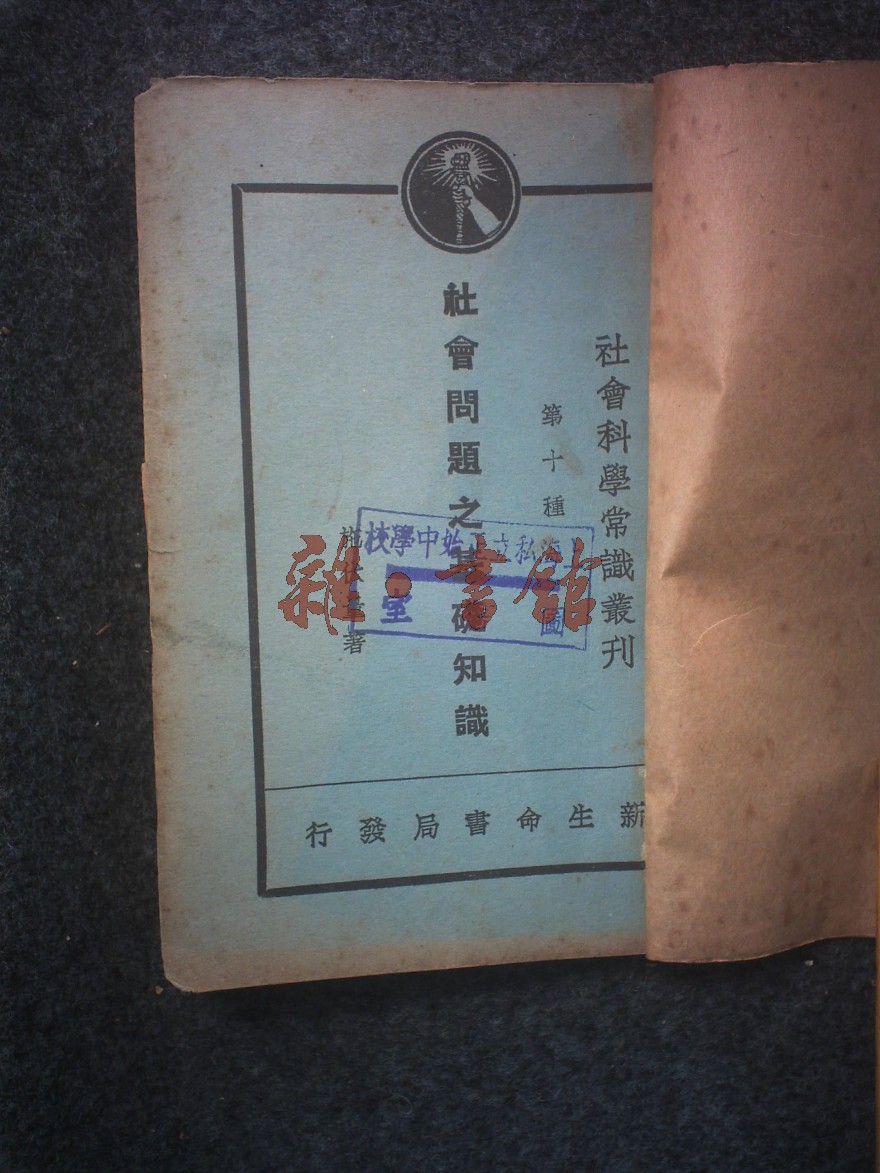 社會科學常識叢刊
第十種
社會問題之基礎知識
施伏量著
新生命書局發行
上海私立正始中學校
圖室
雜·書館